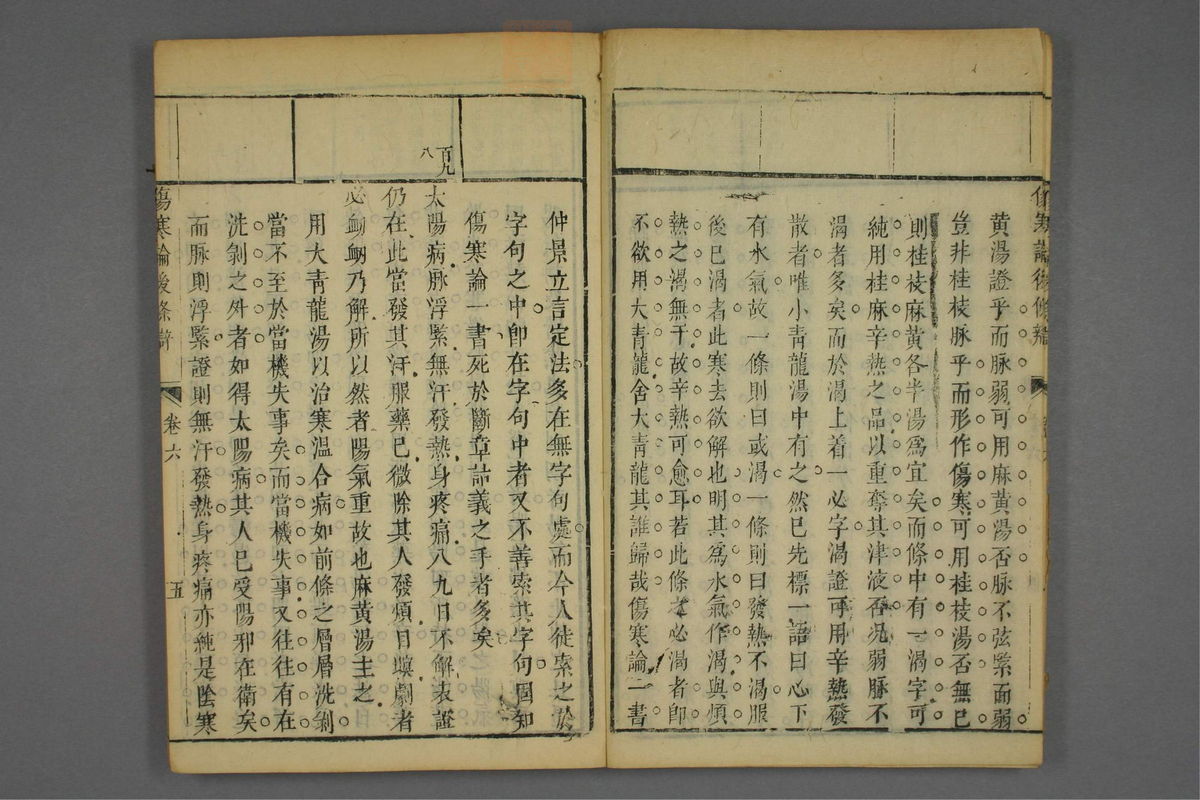 黄湯證乎而脉弱可用麻黄湯否脉不弦緊而弱
豈非桂枝脉乎而形作傷寒可用桂枝湯否無已
則桂枝麻黄各半湯爲宜矣而條中有一渴字可
純用桂麻辛熱之品以重奪其津液否况弱脉不
渴者多矣而於渴上着一必字渴證可用辛熱發
散者唯小青龍湯中有之然已先標一語曰心下
有水氣故一條則曰或渴一條則曰發熱不渴服
後已渴者此寒去欲解也明其爲水氣作渴與煩
熱之渴無干故辛熱可愈耳若此條之必渴者即
不欲用大青龍舍大青龍其誰歸哉傷寒論一書
仲景立言定法多在無字句處而今人徒索之於
字句之中卽在字句中者又不善索其字句固知
傷寒論一書死於斷章詁義之手者多矣
百九八
太陽病脉浮緊無汗發熱身疼痛八九日不解表證
仍在此當發其汗服藥已微除其人發煩目瞑劇者
必衄衂乃解所以然者陽氣重故也麻黄湯主之
用大青龍湯以治寒溫合病如前條之層層洗剝
當不至於當機失事矣而當機失事又往往有在
洗剝之外者如得太陽病其人已受陽邪在衛矣
而脉則浮緊證則無汗發熱身疼痛亦純是陰寒
傷寒論後條辨 卷六 五